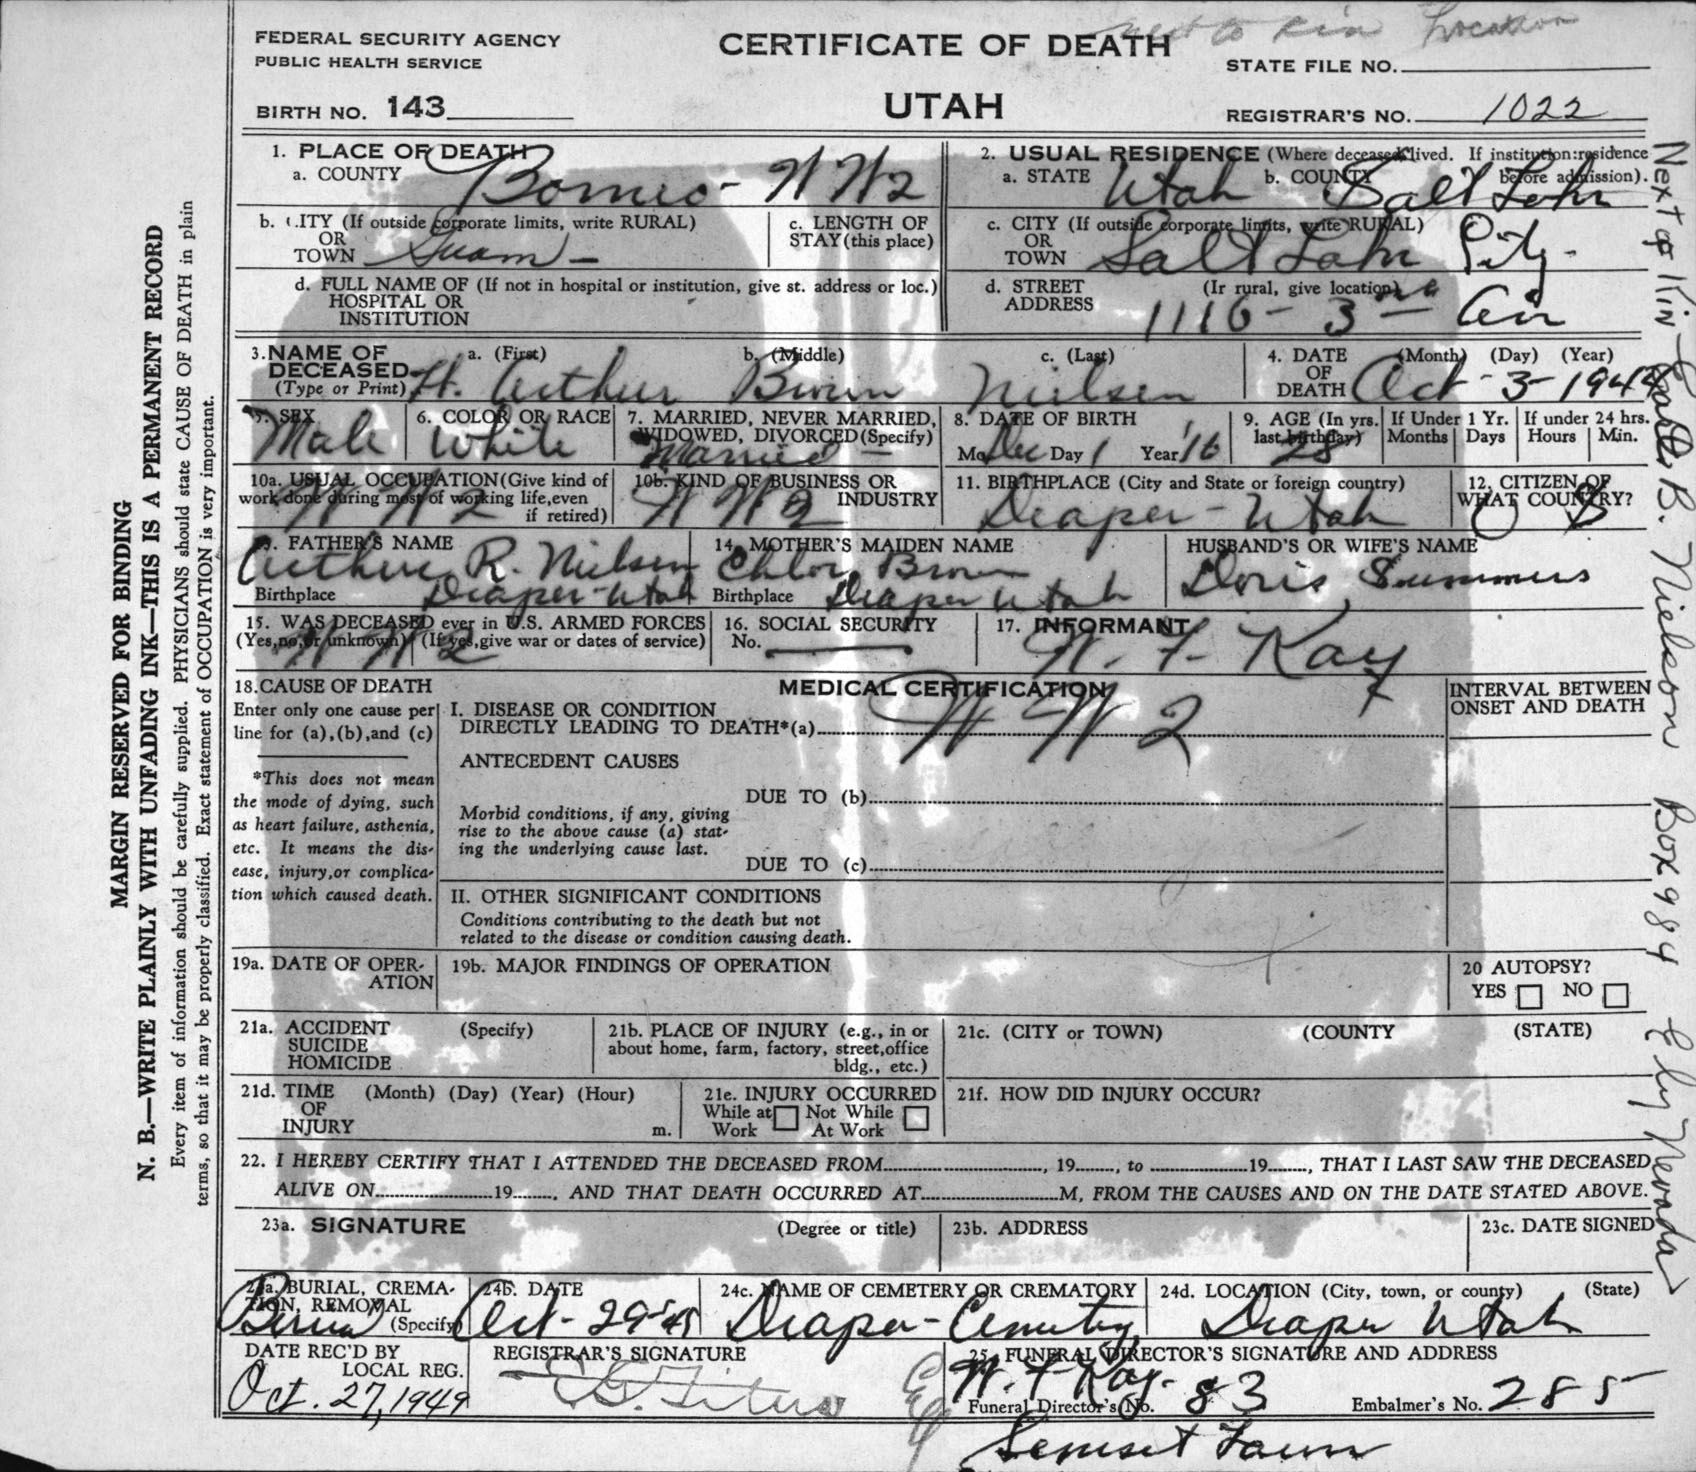 next to kin Location
FEDERAL SECURITY AGENCY
PUBLIC HEALTH SERVICE
CERTIFICATE OF DEATH
STATE FILE NO.
BIRTH NO. 143
UTAH
REGISTRAR'S NO. 1022
1. PLACE OF DEATH
a. COUNTY Borneo - WW2
2. USUAL RESIDENCE (Where deceased lived. If institution:residence before admission).
a. STATE Utah b. COUNTY Salt Lake
b. CITY (If outside corporate limits, write RURAL)
OR
TOWN Guam -
c. LENGTH OF
STAY (this place)
c. CITY (If outside corporate limits, write RURAL)
OR
TOWN Salt Lake City -
d. FULL NAME OF (If not in hospital or institution, give st. address or loc.)
HOSPITAL OR
INSTITUTION
d. STREET (Ir rural, give location)
ADDRESS 1116 - 3
3. NAME OF a. (First) b. (Middle) c. (Last)
DECEASED
(Type or Print) H. Arthur Brown Nielsen
4. DATE (Month) (Day) (Year)
OF
DEATH Oct - 3 - 194
5. SEX
Male
6. COLOR OR RACE
White
7. MARRIED, NEVER MARRIED,
WIDOWED, DIVORCED (Specify)
Married -
8. DATE OF BIRTH
Mo Dec Day 1 Year '16
9. AGE (In yrs.
last birthday)
28
If Under 1 Yr.
Months Days
If under 24 hrs.
Hours Min.
10a. USUAL OCCUPATION (Give kind of
work done during most of working life, even
if retired)
WW2
10b. KIND OF BUSINESS OR
INDUSTRY
WW2
11. BIRTHPLACE (City and State or foreign country)
Draper - Utah
12. CITIZEN OF
WHAT COUNTRY?
U S
13. FATHER'S NAME
Arthur R. Nielsen
Birthplace Draper - Utah
14. MOTHER'S MAIDEN NAME
Chloe Brown
Birthplace Draper Utah
HUSBAND'S OR WIFE'S NAME
Doris Summers
15. WAS DECEASED ever in U.S. ARMED FORCES
(Yes, no, or unknown) (If yes, give war or dates of service)
WW2
16. SOCIAL SECURITY
No.
17. INFORMANT
W. F. Kay
18. CAUSE OF DEATH
Enter only one cause per
line for (a), (b), and (c)
*This does not mean
the mode of dying, such
as heart failure, asthenia,
etc. It means the dis-
ease, injury, or complica-
tion which caused death.
MEDICAL CERTIFICATION
I. DISEASE OR CONDITION
DIRECTLY LEADING TO DEATH*(a) WW2
ANTECEDENT CAUSES
DUE TO (b)
Morbid conditions, if any, giving
rise to the above cause (a) stat-
ing the underlying cause last.
DUE TO (c)
II. OTHER SIGNIFICANT CONDITIONS
Conditions contributing to the death but not
related to the disease or condition causing death.
INTERVAL BETWEEN
ONSET AND DEATH
19a. DATE OF OPER-
ATION
19b. MAJOR FINDINGS OF OPERATION
20 AUTOPSY?
YES NO
21a. ACCIDENT (Specify)
SUICIDE
HOMICIDE
21b. PLACE OF INJURY (e.g., in or
about home, farm, factory, street, office
bldg., etc.)
21c. (CITY or TOWN) (COUNTY (STATE)
21d. TIME (Month) (Day) (Year) (Hour)
OF
INJURY m.
21e. INJURY OCCURRED
While at Not While
Work At Work
21f. HOW DID INJURY OCCUR?
22. I HEREBY CERTIFY THAT I ATTENDED THE DECEASED FROM , 19 , to 19 , THAT I LAST SAW THE DECEASED
ALIVE ON 19 , AND THAT DEATH OCCURRED AT M, FROM THE CAUSES AND ON THE DATE STATED ABOVE.
23a. SIGNATURE (Degree or title)
23b. ADDRESS
23c. DATE SIGNED
24a. BURIAL, CREMA-
TION, REMOVAL
(Specify)
Burial
24b. DATE
Oct - 29 -
24c. NAME OF CEMETERY OR CREMATORY
Draper - Cemetery
24d. LOCATION (City, town, or county) (State)
Draper Utah
DATE REC'D BY
LOCAL REG.
Oct. 27, 1949
REGISTRAR'S SIGNATURE
25. FUNERAL DIRECTOR'S SIGNATURE AND ADDRESS
W. F. Kay.
Funeral Director's No. 83
Embalmer's No. 285
Sunset Lawn
MARGIN RESERVED FOR BINDING
N. B.—WRITE PLAINLY WITH UNFADING INK—THIS IS A PERMANENT RECORD
Every item of information should be carefully supplied. PHYSICIANS should state CAUSE OF DEATH in plain
terms, so that it may be properly classified. Exact statement of OCCUPATION is very important.
Next of Kin - B. Nielson Box 984 Ely Nevada